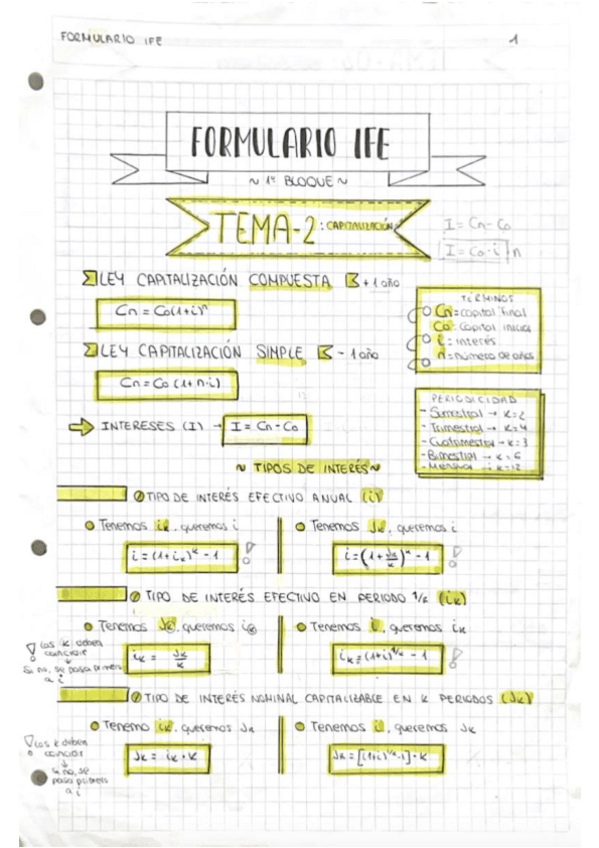 FORMULARIO IFE 1
FORMULARIO IFE
~ 1º BLOQUE ~
TEMA-2: CAPITALIZACIÓN
I = Cn - Co
I = Co · i · n
LEY CAPITALIZACIÓN COMPUESTA + 1 año
Cn = Co(1+i)ⁿ
TÉRMINOS
Cn = capital final
Co: Capital inicial
i = interés
n = número de años
LEY CAPITALIZACIÓN SIMPLE - 1 año
Cn = Co (1+n·i)
PERIODICIDAD
- Semestral → k = 2
- Trimestral → k = 4
- Cuatrimestral → k = 3
- Bimestral → k = 6
- Mensual → k = 12
→ INTERESES (I) → I = Cn - Co
~ TIPOS DE INTERÉS ~
TIPO DE INTERÉS EFECTIVO ANUAL (i)
Tenemos iₖ, queremos i
i = (1+iₖ)ᵏ - 1
Tenemos Jₖ, queremos i
i = (1 + Jₖ/k)ᵏ - 1
TIPO DE INTERÉS EFECTIVO EN PERIODO 1/k (iₖ)
Tenemos Jₖ, queremos iₖ
iₖ = Jₖ/k
Los k deben
coincidir
↓
Si no, se pasa primero
a i
Tenemos i, queremos iₖ
iₖ = (1+i)^1/k - 1
TIPO DE INTERÉS NOMINAL CAPITALIZABLE EN K PERIODOS (Jₖ)
Tenemo iₖ, queremos Jₖ
Jₖ = iₖ · k
Los k deben
coincidir
↓
Si no, se
pasa primero
a i
Tenemos i, queremos Jₖ
Jₖ = [(1+i)^1/k - 1] · k